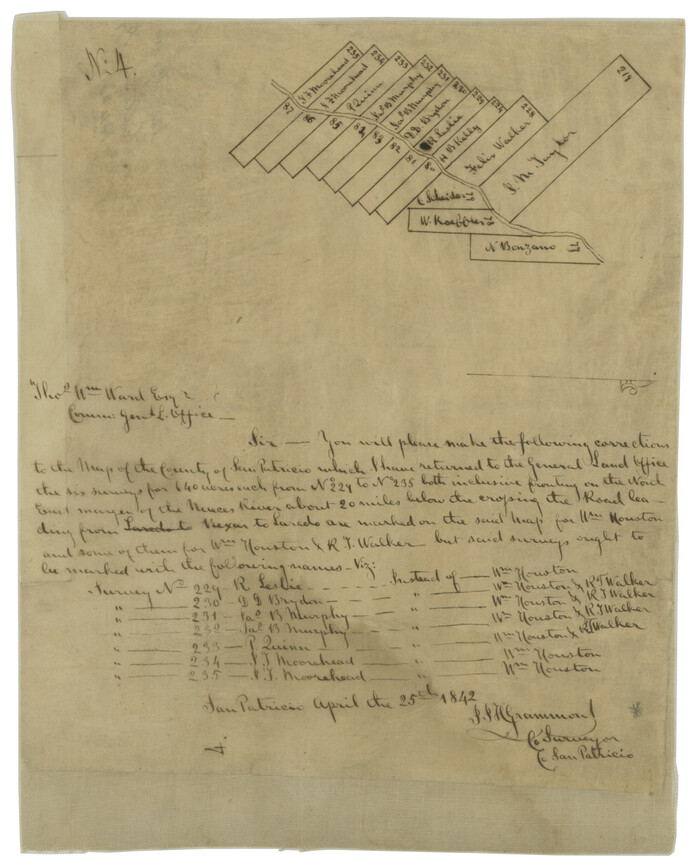 No. 4.
235
234
233
232
231
230
229
228
219
J T Moorehead
J T Moorehead
P Quinn
Jas B Murphy
Jas B Murphy
D D Brydon
R Leslie
H B Kelly
Felix Walker
87
86
85
84
83
82
81
80
W. Koeffler
N Bonzano
Thos Wm Ward Esqr
Commr Genl L. Office
Sir — You will please make the following corrections
to the Map of the County of San Patricio which I have returned to the General Land Office
the six surveys for 640 acres each from No 229 to No 235 both inclusive fronting on the North
East margin of the Nueces River about 20 miles below the crossing the Road lea-
ding from Laredo to Bexar to Laredo are marked on the said Map for Wm Houston
and some of them for Wm Houston & R T. Walker but said surveys ought to
be marked with the following names — Viz:
Survey No 229 R Leslie — Instead of — Wm Houston
" — 230 — D D Brydon — " — Wm Houston & R T Walker
" — 231 — Jas B Murphy — " — Wm Houston & R T Walker
" — 232 — Jas B Murphy — " — Wm Houston & R T Walker
" — 233 — P Quinn — " — Wm Houston & R T Walker
" — 234 — J T Moorehead — " — Wm Houston
" — 235 — J. T. Moorehead — " — Wm Houston
San Patricio April the 25th 1842
J S H Grammont
Co Surveyor
C San Patricio